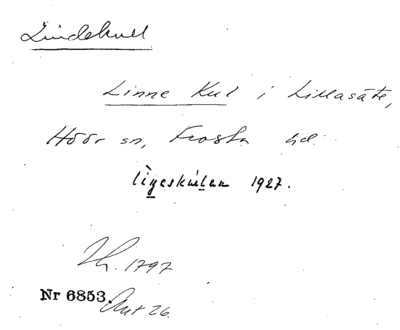 Lindekull
Linne Kul i Lillasäte,
Höör sn, Frosta hd.
1927.
Th. 1797
Nr 6853. Ant 26.